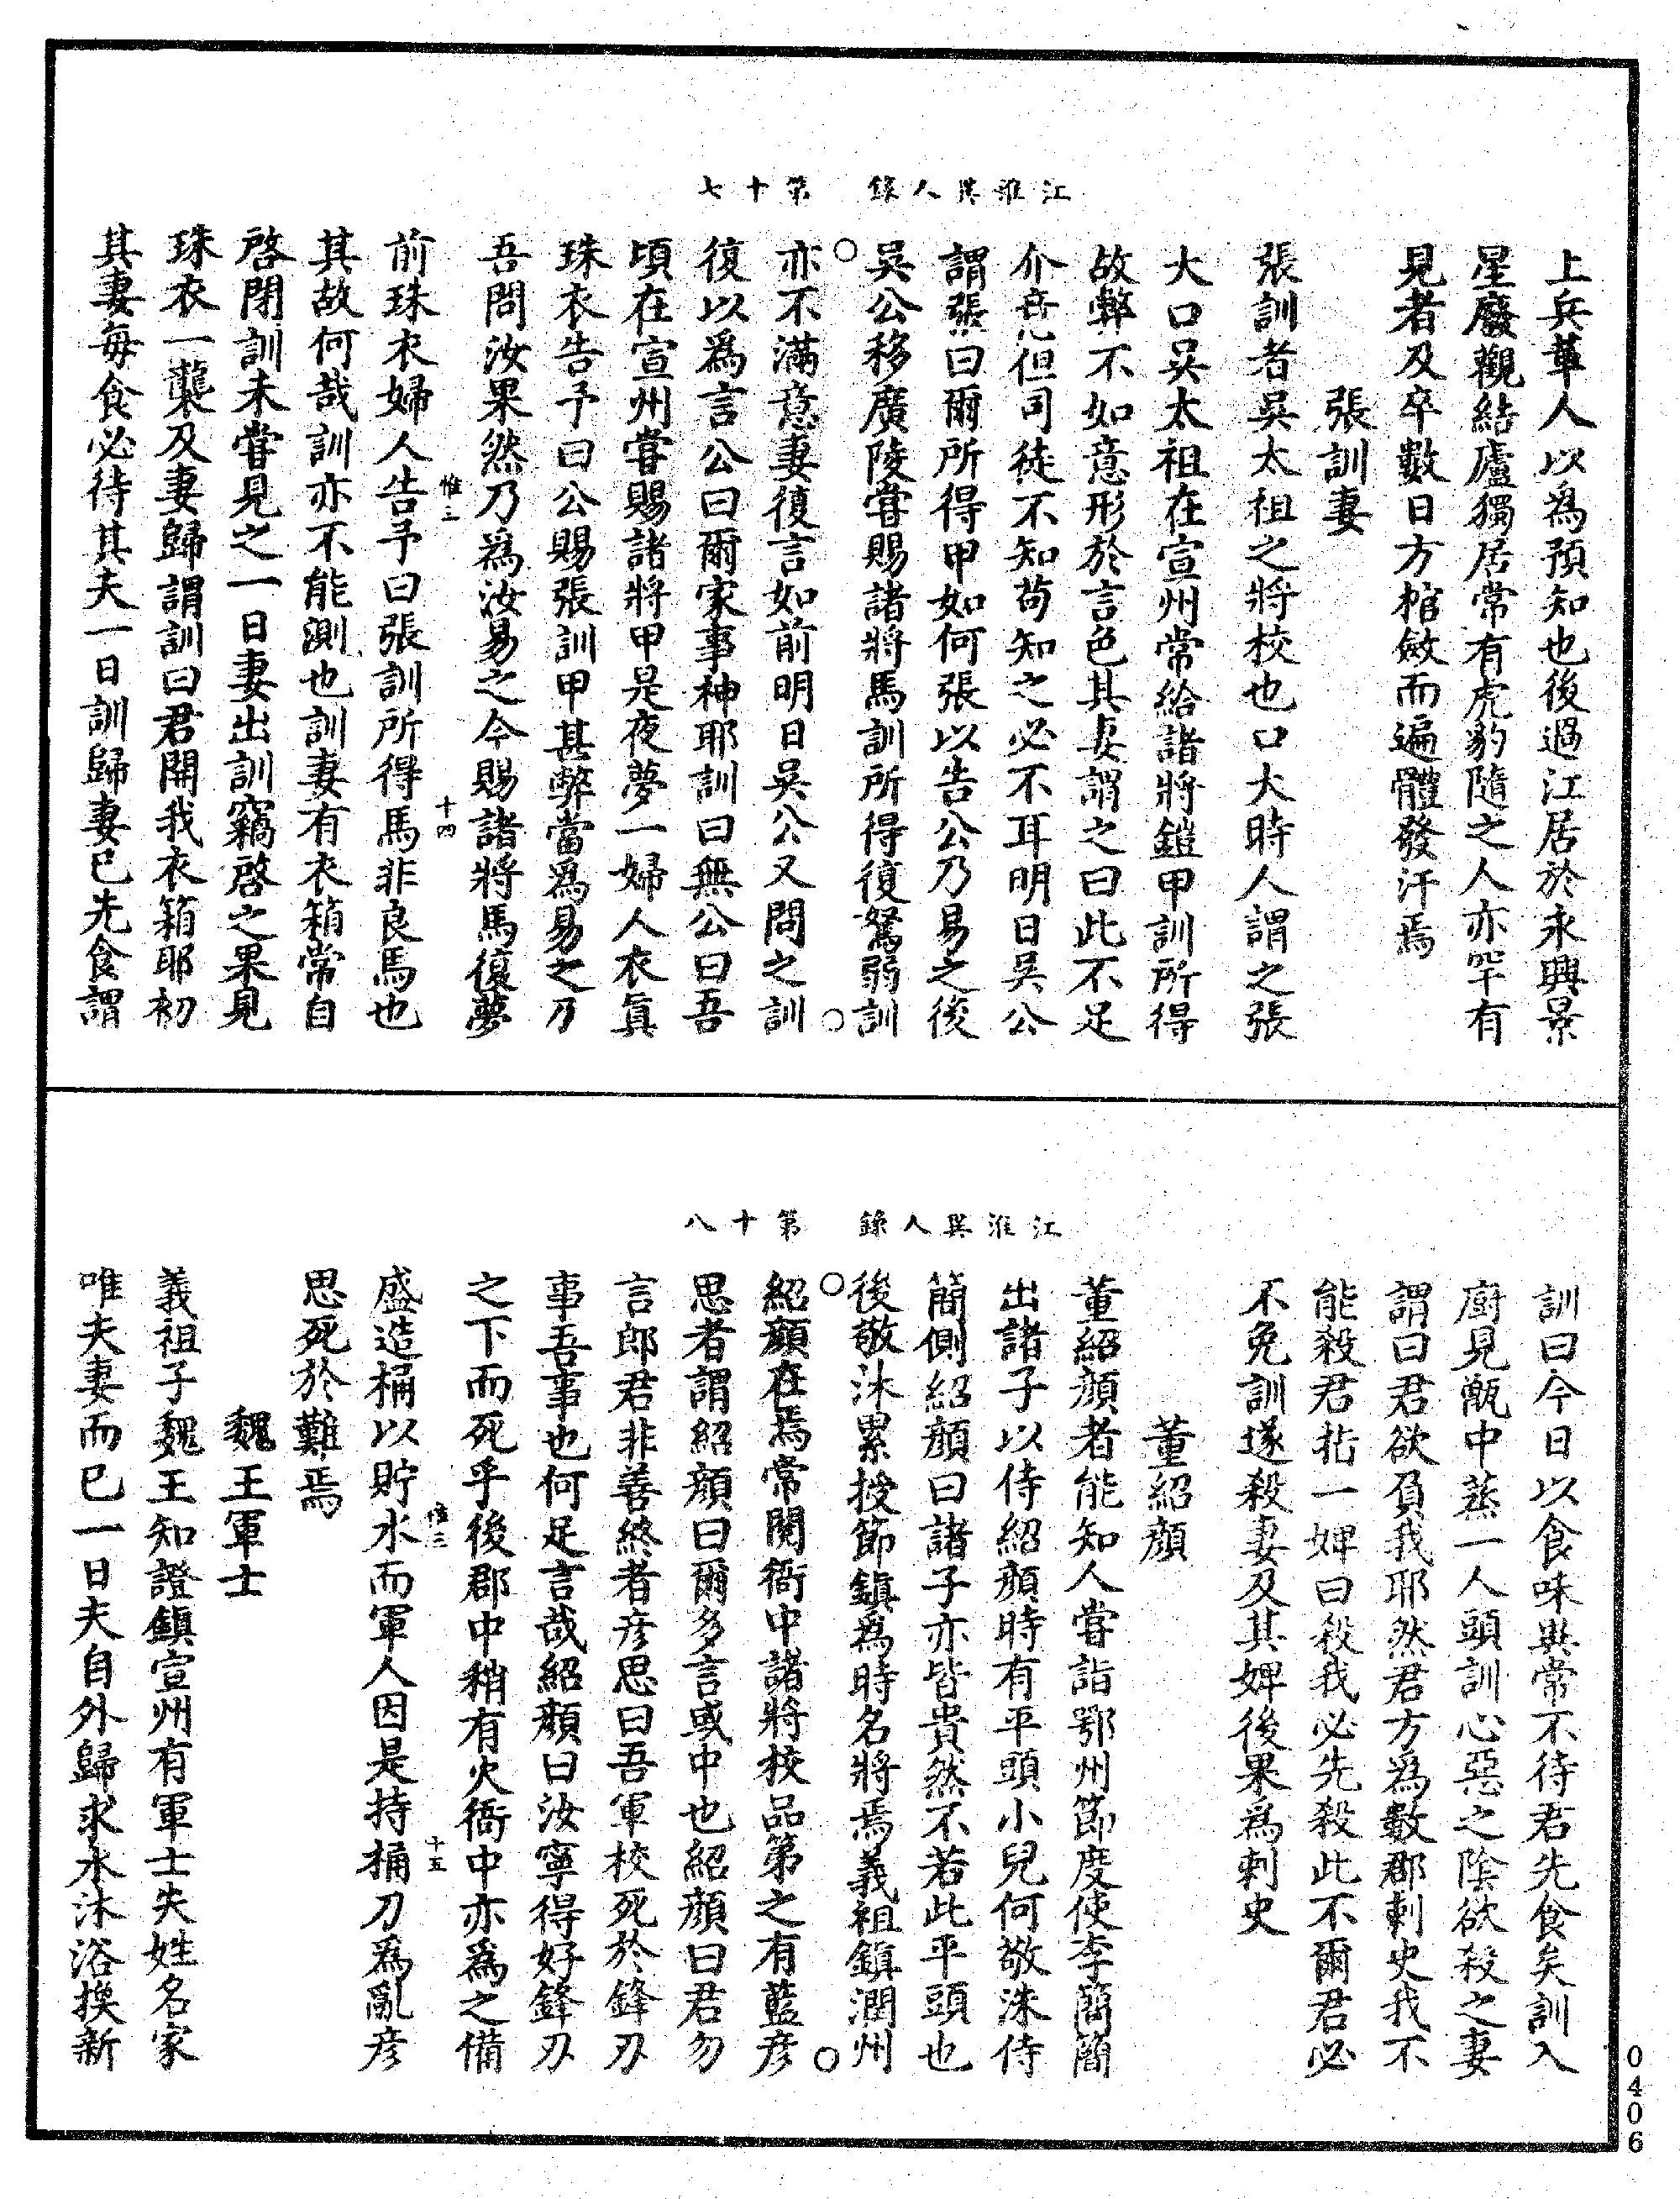 江淮異人錄　第十七
上兵革人以為預知也後過江居於永興景
星廢觀結廬獨居常有虎豹隨之人亦罕有
見者及卒數日方棺斂而遍體發汗焉
張訓妻
張訓者吳太祖之將校也口大時人謂之張
大口吳太祖在宣州常給諸將鎧甲訓所得
故弊不如意形於言色其妻謂之曰此不足
介意但司徒不知苟知之必不耳明日吳公
謂張曰爾所得甲如何張以告公乃易之後
吳公移廣陵甞賜諸將馬訓所得復駑弱訓
亦不滿意妻復言如前明日吳公又問之訓
復以為言公曰爾家事神耶訓曰無公曰吾
頃在宣州甞賜諸將甲是夜夢一婦人衣真
珠衣告予曰公賜張訓甲甚弊當為易之乃
吾問汝果然乃為汝易之今賜諸將馬復夢
前珠衣婦人告予曰張訓所得馬非良馬也
惟三　十四
其故何哉訓亦不能測也訓妻有衣箱常自
啓閉訓未甞見之一日妻出訓竊啓之果見
珠衣一襲及妻歸謂訓曰君開我衣箱耶初
其妻每食必待其夫一日訓歸妻已先食謂
江淮異人錄　第十八
訓曰今日以食味與常不待君先食矣訓入
廚見甑中蒸一人頭訓心惡之陰欲殺之妻
謂曰君欲負我耶然君方為數郡刺史我不
能殺君指一婢曰殺我必先殺此不爾君必
不免訓遂殺妻及其婢後果為刺史
董紹顏
董紹顏者能知人甞詣鄂州節度使李簡簡
出諸子以侍紹顏時有平頭小兒何敬洙侍
簡側紹顏曰諸子亦皆貴然不若此平頭也
後敬沐累授節鎮為時名將焉義祖鎮潤州
紹顏在焉常閱衙中諸將校品第之有藍彥
思者謂紹顏曰爾多言或中也紹顏曰君勿
言郎君非善終者彥思曰吾軍校死於鋒刃
事吾事也何足言哉紹顏曰汝寧得好鋒刃
之下而死乎後郡中稍有火衙中亦為之備
盛造桶以貯水而軍人因是持桶刀為亂彥
惟三　十五
思死於難焉
魏王軍士
義祖子魏王知證鎮宣州有軍士失姓名家
唯夫妻而已一日夫自外歸求水沐浴換新
0406